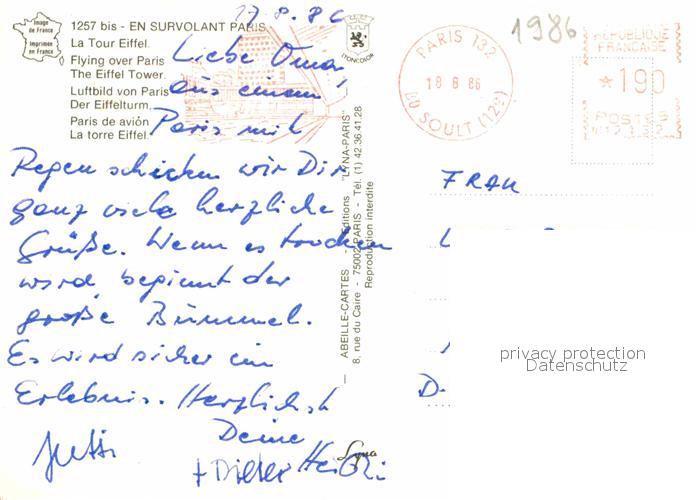 17.8.86
Image
de France
Imprimée
en France
1257 bis - EN SURVOLANT PARIS
La Tour Eiffel.
Flying over Paris
The Eiffel Tower.
Luftbild von Paris
Der Eiffelturm.
Paris de avión
La torre Eiffel.
LYONCOLOR
Liebe Oma!
aus einem
Paris mit
Regen schicken wir Dir
ganz viele herzliche
Grüße. Wenn es trocken
wird beginnt der
große Bummel.
Es wird sicher ein
Erlebnis. Herzlichst
Deine
+ Dieter
ABEILLE-CARTES - Éditions "LYNA-PARIS"
8, rue du Caire - 75002 PARIS - Tél. (1) 42.36.41.28
Reproduction interdite
Lyna
1986
PARIS 132
18 8 86
BD SOULT (12E)
REPUBLIQUE
FRANCAISE
*190
POSTES
FRAU
D-
privacy protection
Datenschutz